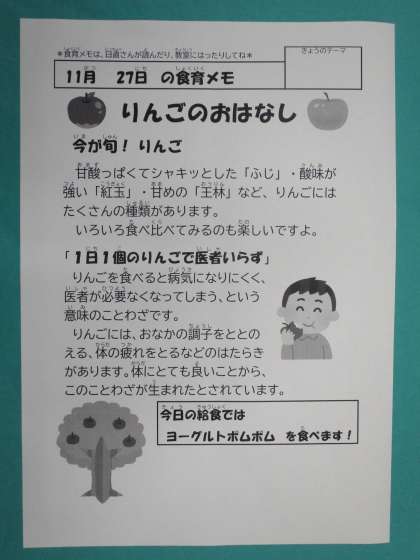 ＊食育メモは、日直さんが読んだり、教室にはったりしてね＊
きょうのテーマ
11月　27日　の食育メモ
りんごのおはなし
今が旬！りんご
甘酸っぱくてシャキッとした「ふじ」・酸味が
強い「紅玉」・甘めの「王林」など、りんごには
たくさんの種類があります。
いろいろ食べ比べてみるのも楽しいですよ。
「１日１個のりんごで医者いらず」
りんごを食べると病気になりにくく、
医者が必要なくなってしまう、という
意味のことわざです。
りんごには、おなかの調子をととの
える、体の疲れをとるなどのはたらき
があります。体にとても良いことから、
このことわざが生まれたとされています。
今日の給食では
ヨーグルトポムポム　を食べます！